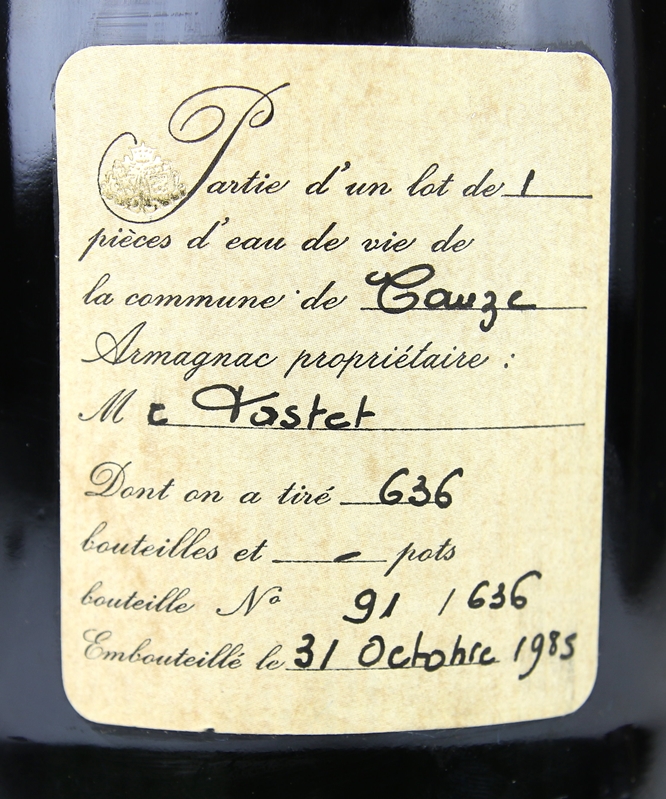 Partie d'un lot de 1
pièces d'eau de vie de
la commune de Cauze
Armagnac propriétaire :
M c Tastet
Dont on a tiré 636
bouteilles et - pots
bouteille No 91 / 636
Embouteillé le 31 Octobre 1985